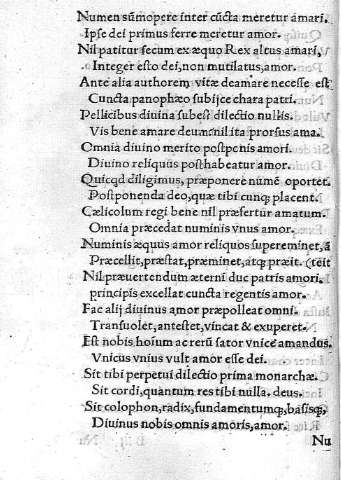 Numen sūmopere inter cūcta meretur amari.
Ipse dei primus ferre meretur amor.
Nil patitur secum ex æquo Rex altus amari,
Integer esto dei, non mutilatus, amor.
Ante alia authorem vitæ deamare necesse est
Cuncta panophæo subijce chara patri.
Pellicibus diuina subest dilectio nullis.
Vis bene amare deum, nil ita prorsus ama.
Omnia diuino merito postpenis amori.
Diuino reliquus posthabeatur amor.
Quicqd diligimus, præponere numē oportet.
Postponenda deo, quæ tibi cunq; placent.
Cælicolum regi bene nil præfertur amatum.
Omnia præcedat numinis vnus amor.
Numinis æquus amor reliquos supereminet, ā
Præcellit, præstat, præminet, atq; præit. (teit
Nil præuertendum æterni duc patris amori.
principis excellat cuncta regentis amor.
Fac alij diuinus amor præpolleat omni.
Transuolet, antestet, vincat & exuperet.
Est nobis hoīum ac rerū sator vnice amandus.
Vnicus vnius vult amor esse dei.
Sit tibi perpetui dilectio prima monarchæ.
Sit cordi, quantum res tibi nulla. deus.
Sit colophon, radix, fundamentumq;, basisq;,
Diuinus nobis omnis amoris, amor.
Nu